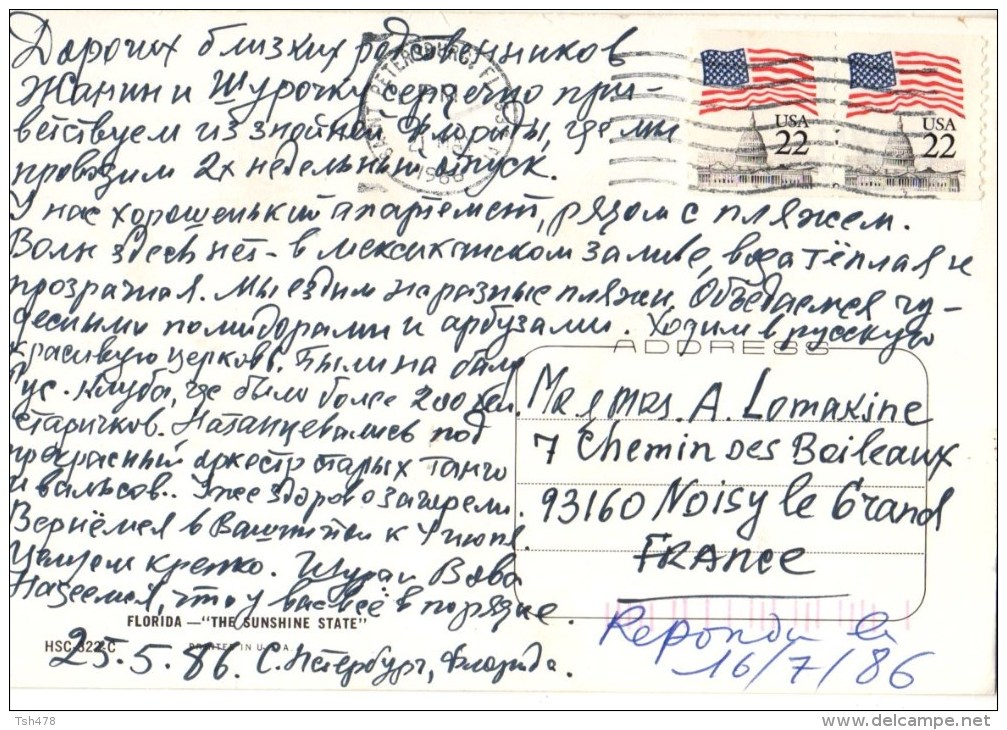 Дорогих близких родственников
Жанин и Шурочку сердечно при-
ветствуем из знойной Флориды, где мы
проводим 2х недельный отпуск.
У нас хорошенький апартемент, рядом с пляжем.
Волн здесь нет - в мексиканском заливе, вода тёплая и
прозрачная. Мы ездим на разные пляжи. Объедаемся чу-
десными помидорами и арбузами. Ходим в русскую
красивую церковь. Были на балу
Рус. Клуба, где было более 200 чел.
старичков. Натанцевались под
прекрасный оркестр старых танго
и вальсов.. Уже здорово загорели.
Вернёмся в Вашингтон к июня.
Целуем крепко. Шура и Вова
Надеемся, что у вас всё в порядке.
25.5.86. С. Петербург, Флорида.
FLORIDA — "THE SUNSHINE STATE"
HSC-322-C PRINTED IN U.S.A.
SAINT PETERSBURG, FL
1986
USA
22
USA
22
ADDRESS
Mr & Mrs. A. Lomakine
7 Chemin des Boileaux
93160 Noisy le Grand
FRANCE
Repondu le
16/7/86
Tsh478
www.delcampe.net